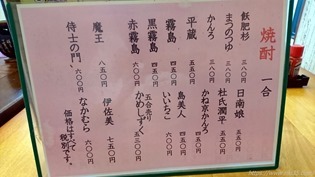 焼酎 一合
飫肥杉 三八〇円
まつのつゆ 三八〇円
かんろ 三八〇円
平蔵 三八〇円
霧島 四五〇円
黒霧島 四五〇円
赤霧島 六〇〇円
魔王 八五〇円
侍士の門 六〇〇円
日南娘 五五〇円
杜氏潤平 五五〇円
かね京かんろ
島美人
いいちこ
五合売り
かめしずく
伊佐美 七五〇円
なかむら 六〇〇円
価格はすべて
税別です。